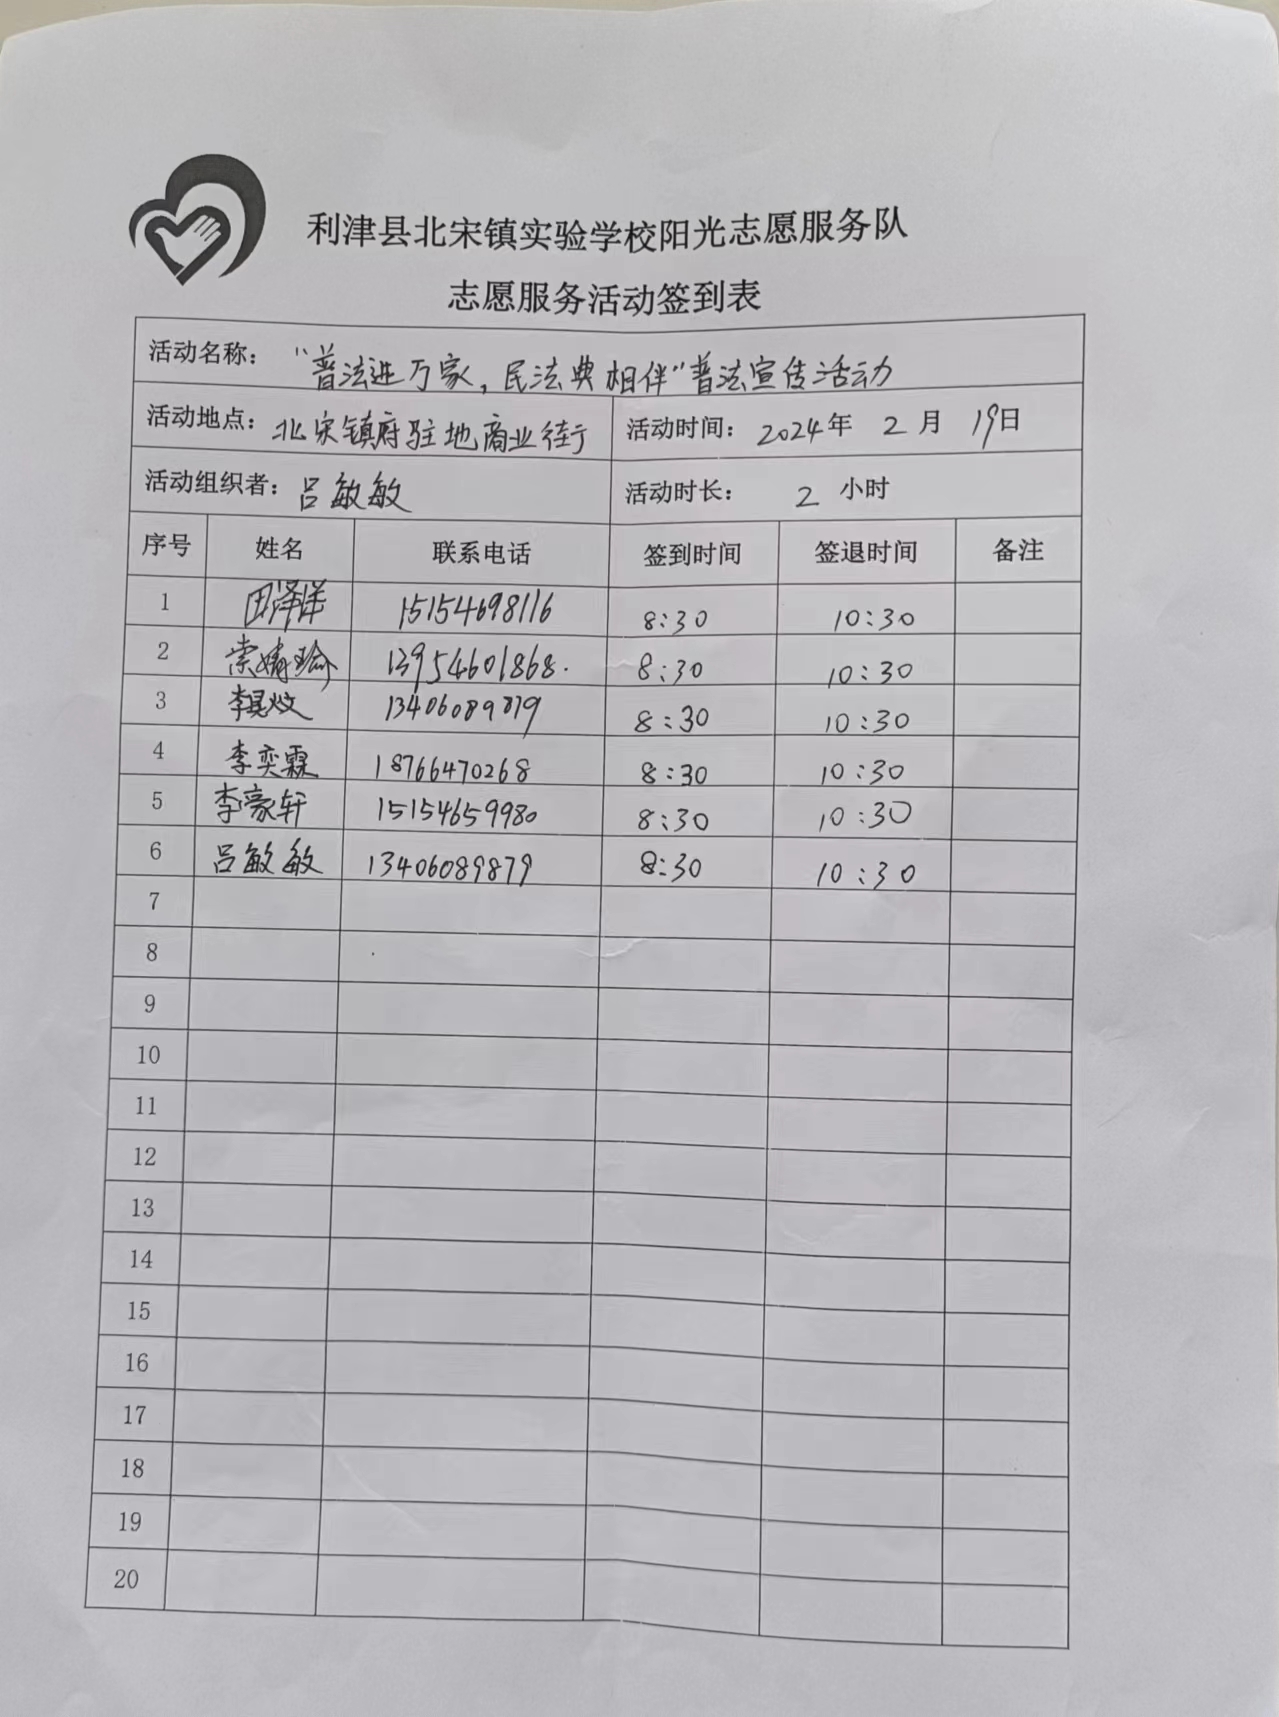 利津县北宋镇实验学校阳光志愿服务队
志愿服务活动签到表
活动名称：“普法进万家，民法典相伴”普法宣传活动
活动地点：北宋镇府驻地商业街 活动时间：2024年 2月 19日
活动组织者：吕敏敏 活动时长： 2 小时
序号 姓名 联系电话 签到时间 签退时间 备注
1 田泽洋 15154698116 8:30 10:30
2 13954601868. 8:30 10:30
3 13406089879 8:30 10:30
4 李奕霖 18766470268 8:30 10:30
5 李豪轩 15154659980 8:30 10:30
6 吕敏敏 13406089879 8:30 10:30
7
8
9
10
11
12
13
14
15
16
17
18
19
20